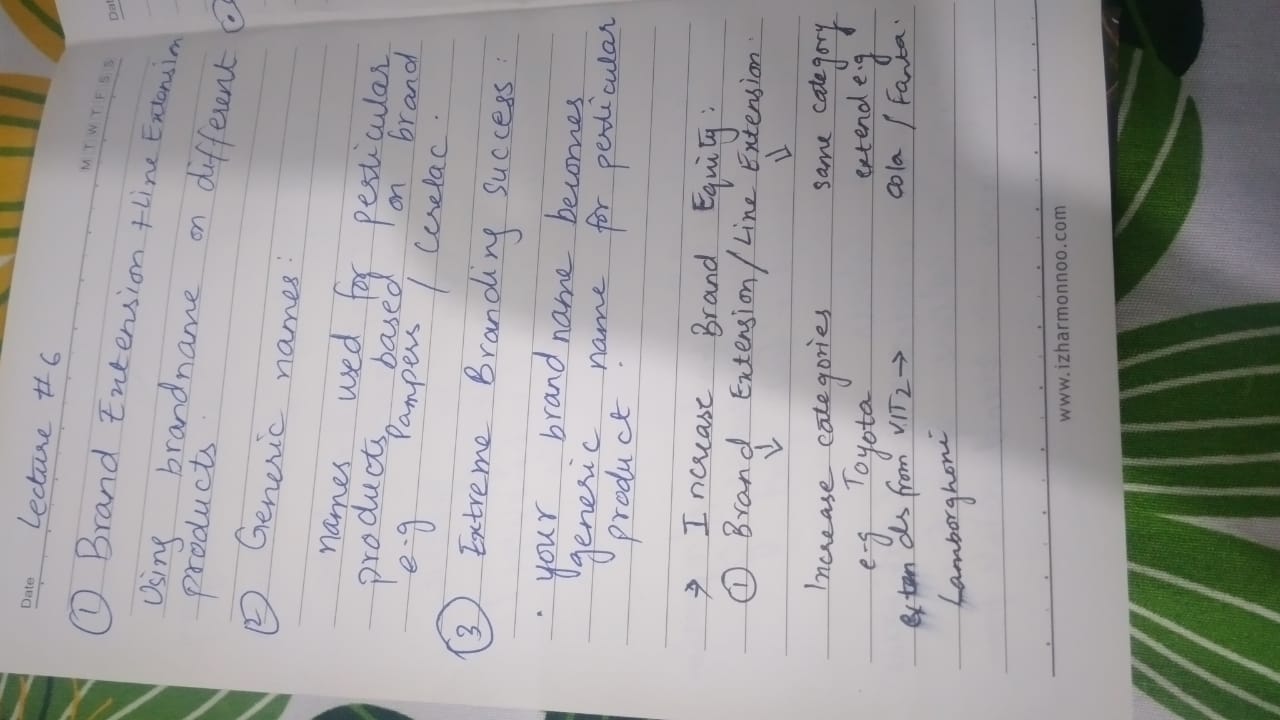 Date Lecture # 6
M T W T F S S
① Brand Extension + Line Extension
Using brandname on different
products.
② Generic names:
names used for perticular
products based on brand
e.g Pampers / Cerelac.
③ Extreme Branding success:
• your brandname becomes
generic name for perticular
product.
→ Increase Brand Equity:
① Brand Extension / Line Extension.
↓ ↓
Increase categories same category
e-g Toyota extend e.g
extends from VITZ → Cola / Fanta.
Lamborghoni
www.izharmonnoo.com